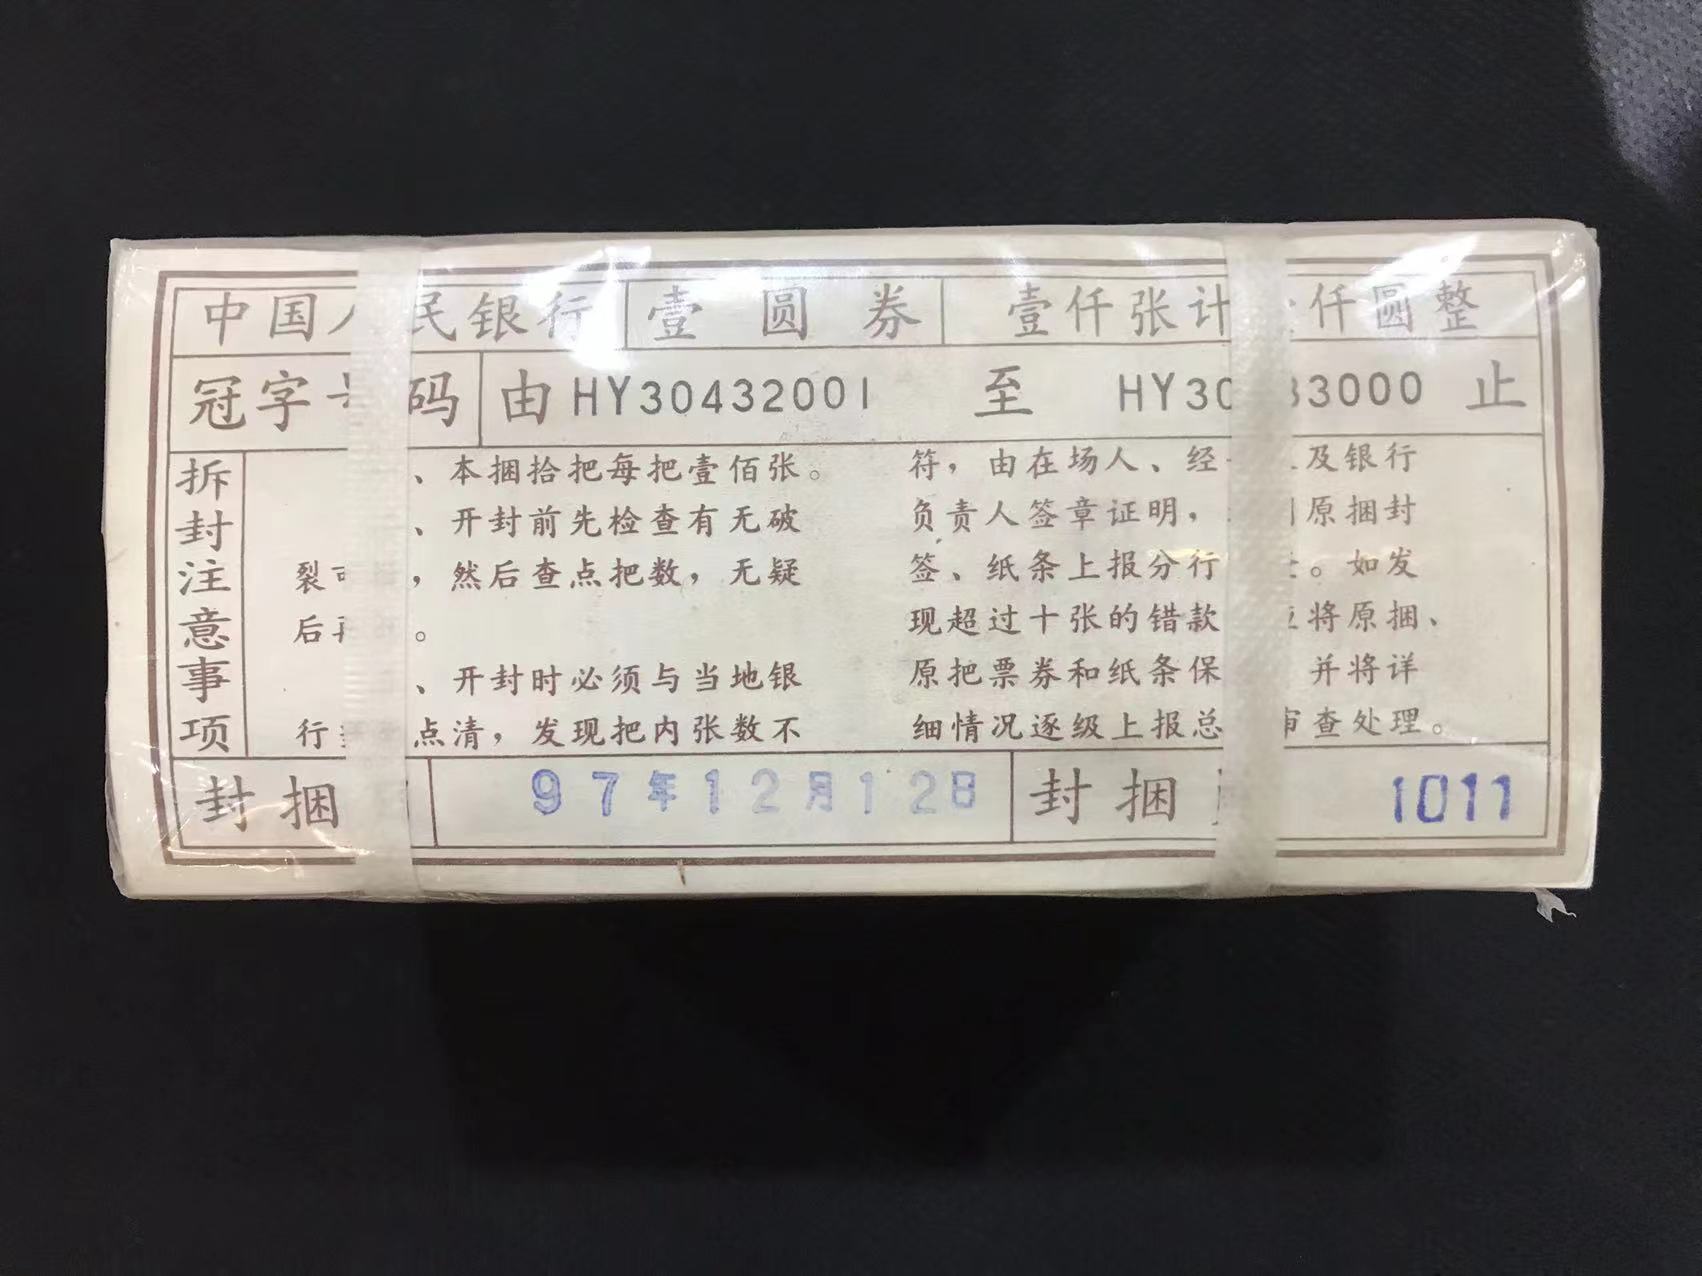 中国人民银行 壹圆券 壹仟张计 仟圆整
冠字 码 由HY30432001 至 HY30 33000 止
拆封注意事项
、本捆拾把每把壹佰张。
、开封前先检查有无破
裂 ，然后查点把数，无疑
后 。
、开封时必须与当地银
行 点清，发现把内张数不
符，由在场人、经 及银行
负责人签章证明， 原捆封
签、纸条上报分行 。如发
现超过十张的错款 将原捆、
原把票券和纸条保 并将详
细情况逐级上报总 审查处理。
封捆 97年12月12日 封捆 1011